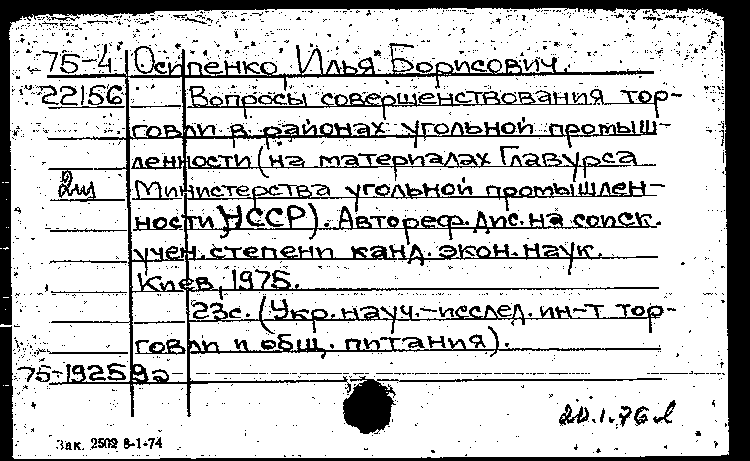 75-4 Осипенко, Илья Борисович.
22156 Вопросы совершенствования тор-
говли в районах угольной промыш-
ленности (на материалах Главурса
2ш Министерства угольной промышлен-
ности УССР). Автореф. дис. на соиск.
учен. степени канд. экон. наук.
Киев, 1975.
23с. (Укр. науч.-исслед. ин-т тор-
говли и общ. питания).
75-19259а
20.1.76
Зак. 2502 8-1-74